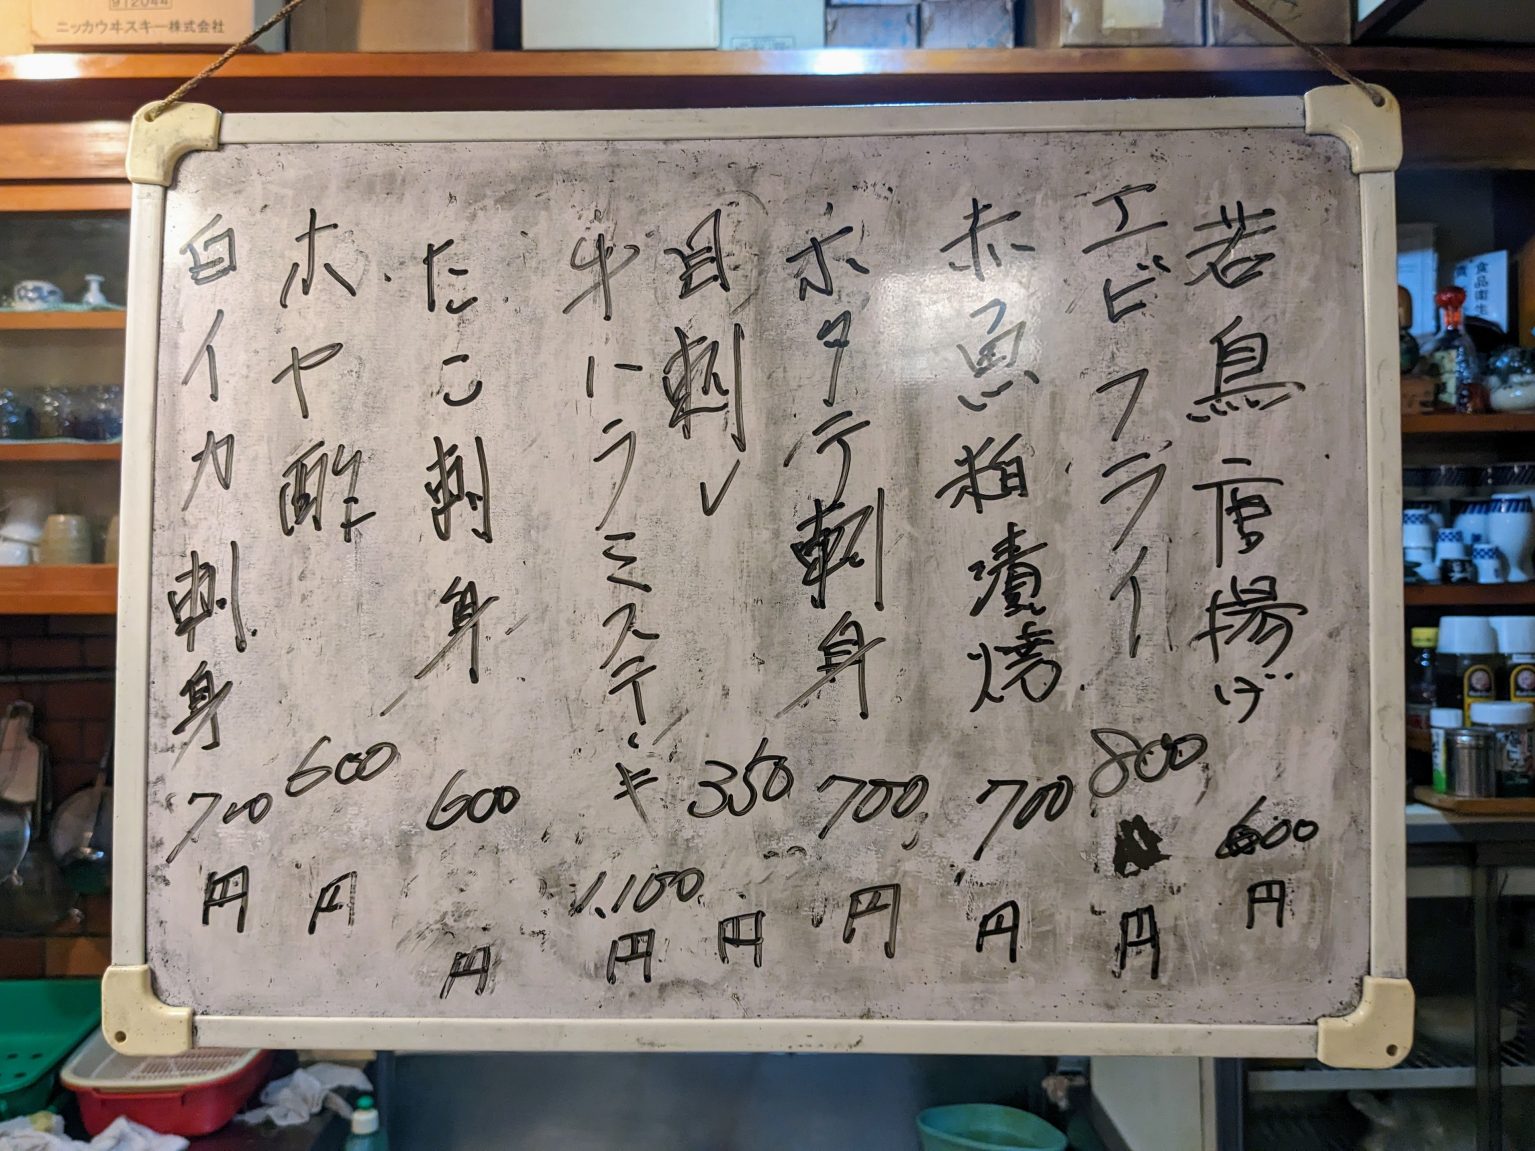 912044
ニッカウヰスキー株式会社
若鳥唐揚げ 600円
エビフライ 800円
赤魚粕漬焼 700円
ホタテ刺身 700円
目刺し 350円
牛ハラミステーキ 1.100円
たこ刺身 600円
ホヤ酢 600円
白イカ刺身 700円
食品衛生